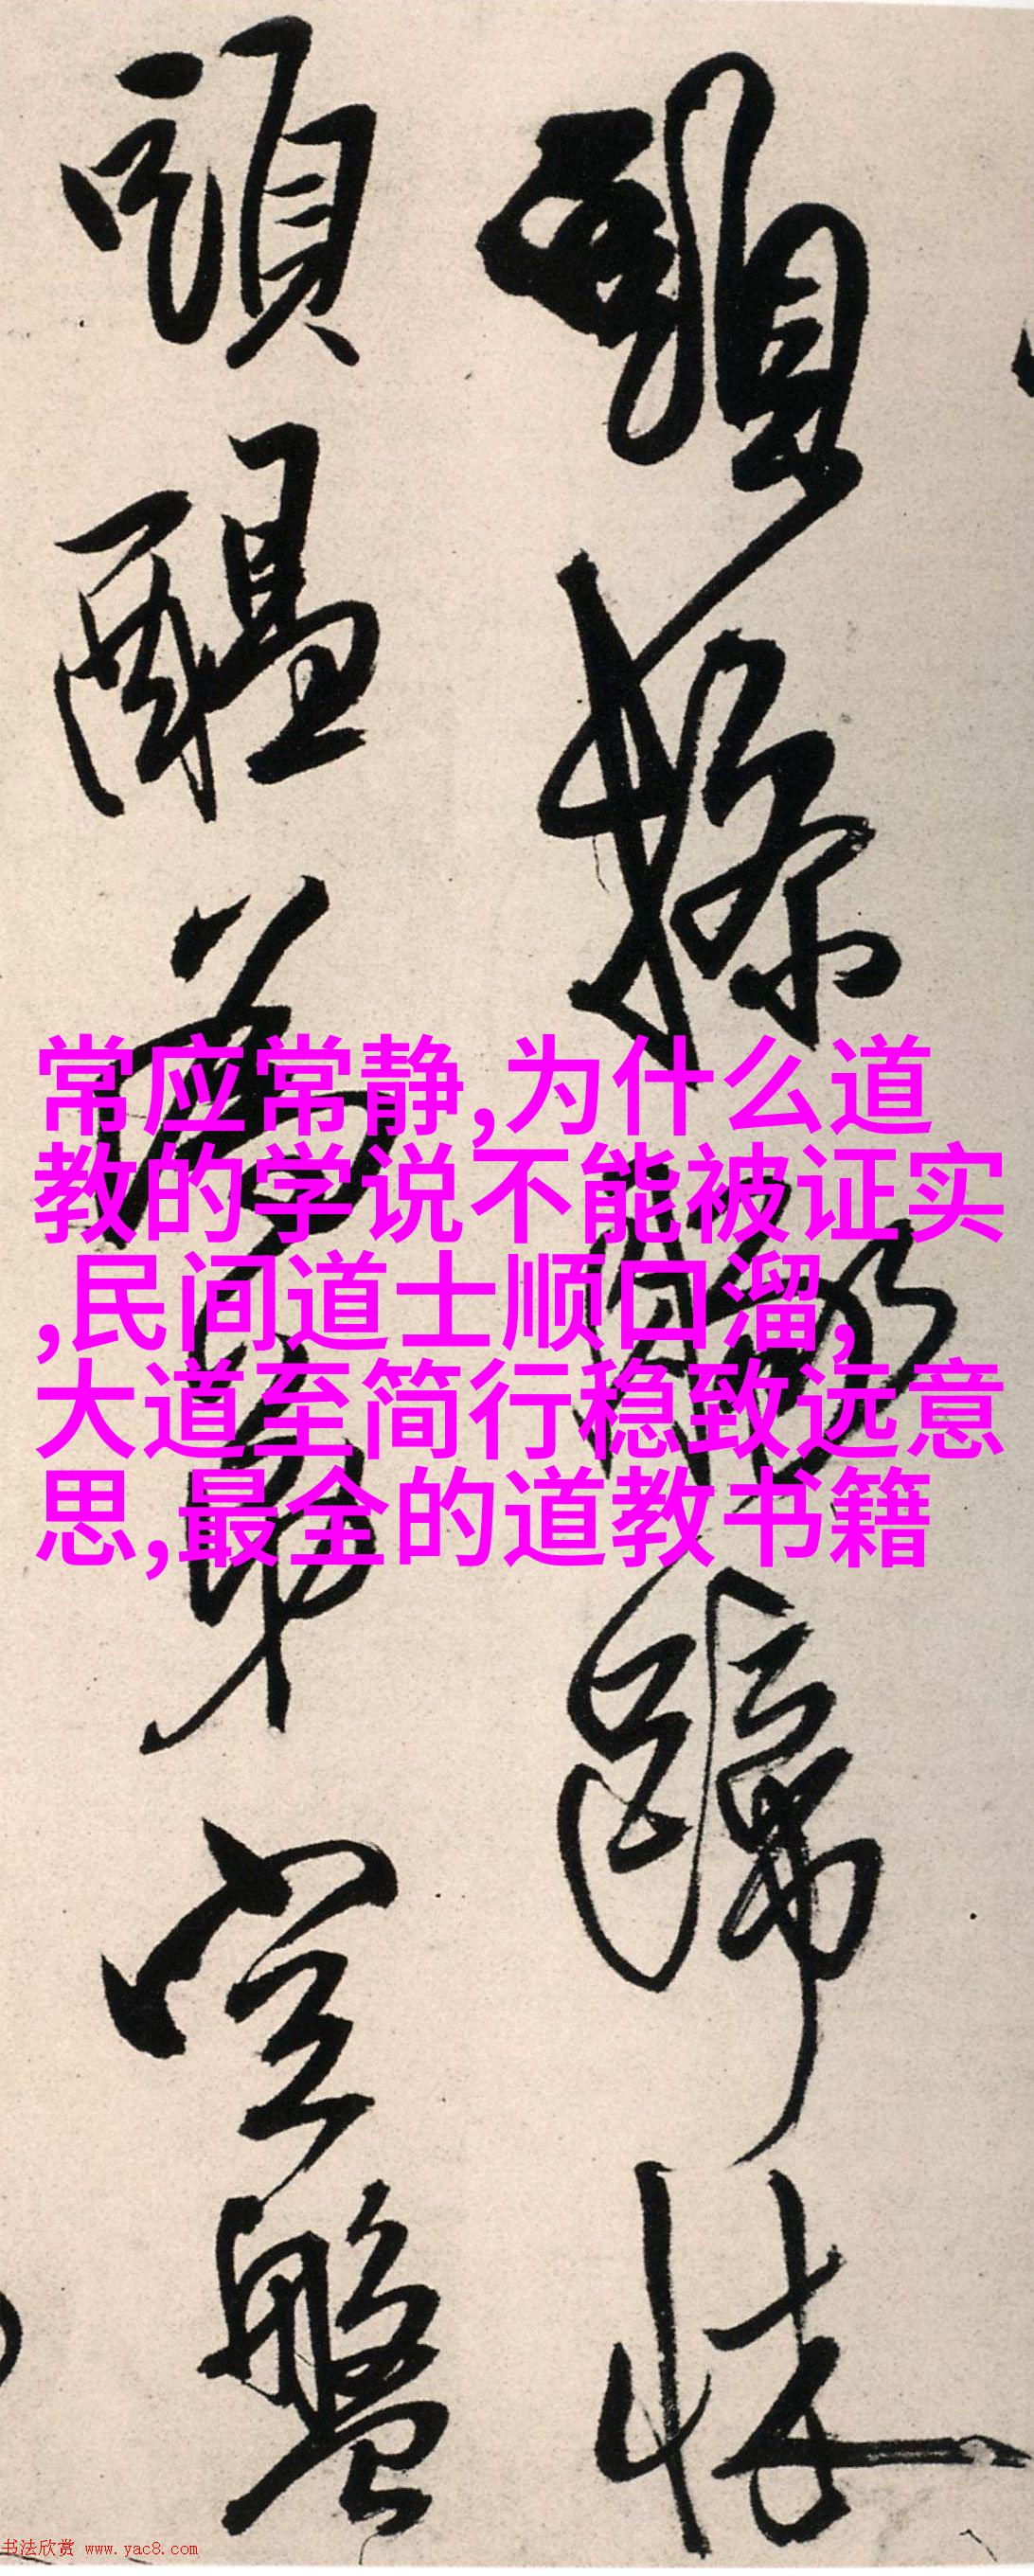 頭操豚蹄快
頭醞為第豈盤
常应常静,为什么道
教的学说不能被证实
,民间道士顺口溜,
大道至简行稳致远意
思,最全的道教书籍
书法欣赏 www.yac8.com